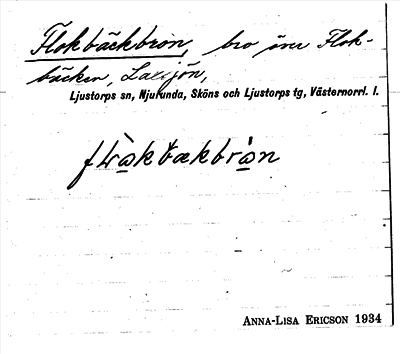 Flokbäckbron, bro över Flok-
bäcken, Laxsjön,
Ljustorps sn, Njurunda, Sköns och Ljustorps tg, Västernorrl. l.
ANNA-LISA ERICSON 1934